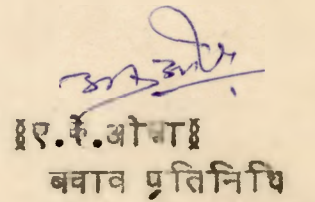 §ए.के.ओझा§
बचाव प्रतिनिधि